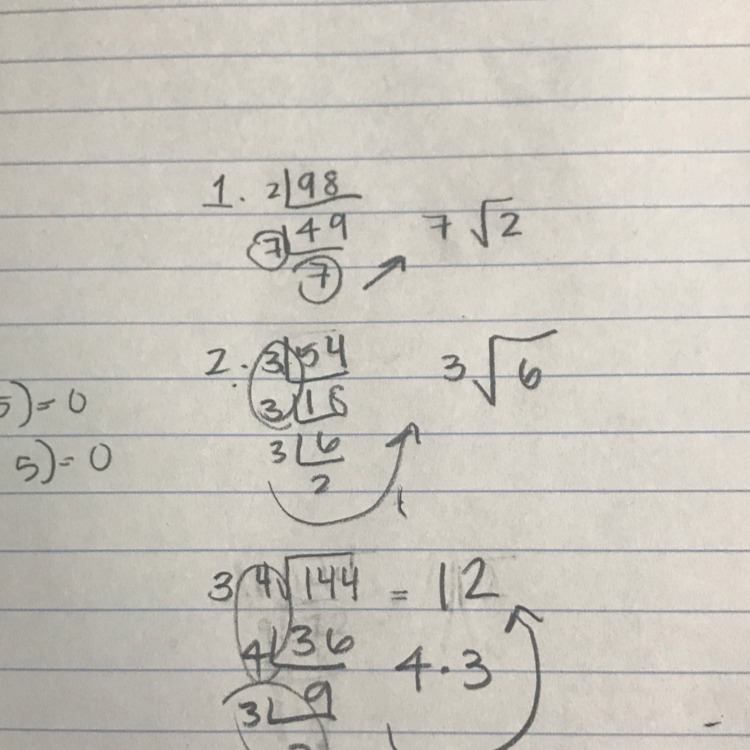 1. 2|98
7|49
7
7√2
2. 3|54
3|18
3|6
2
3√6
5)=0
5)=0
3 4√144 = 12
4|36
4·3
3|9